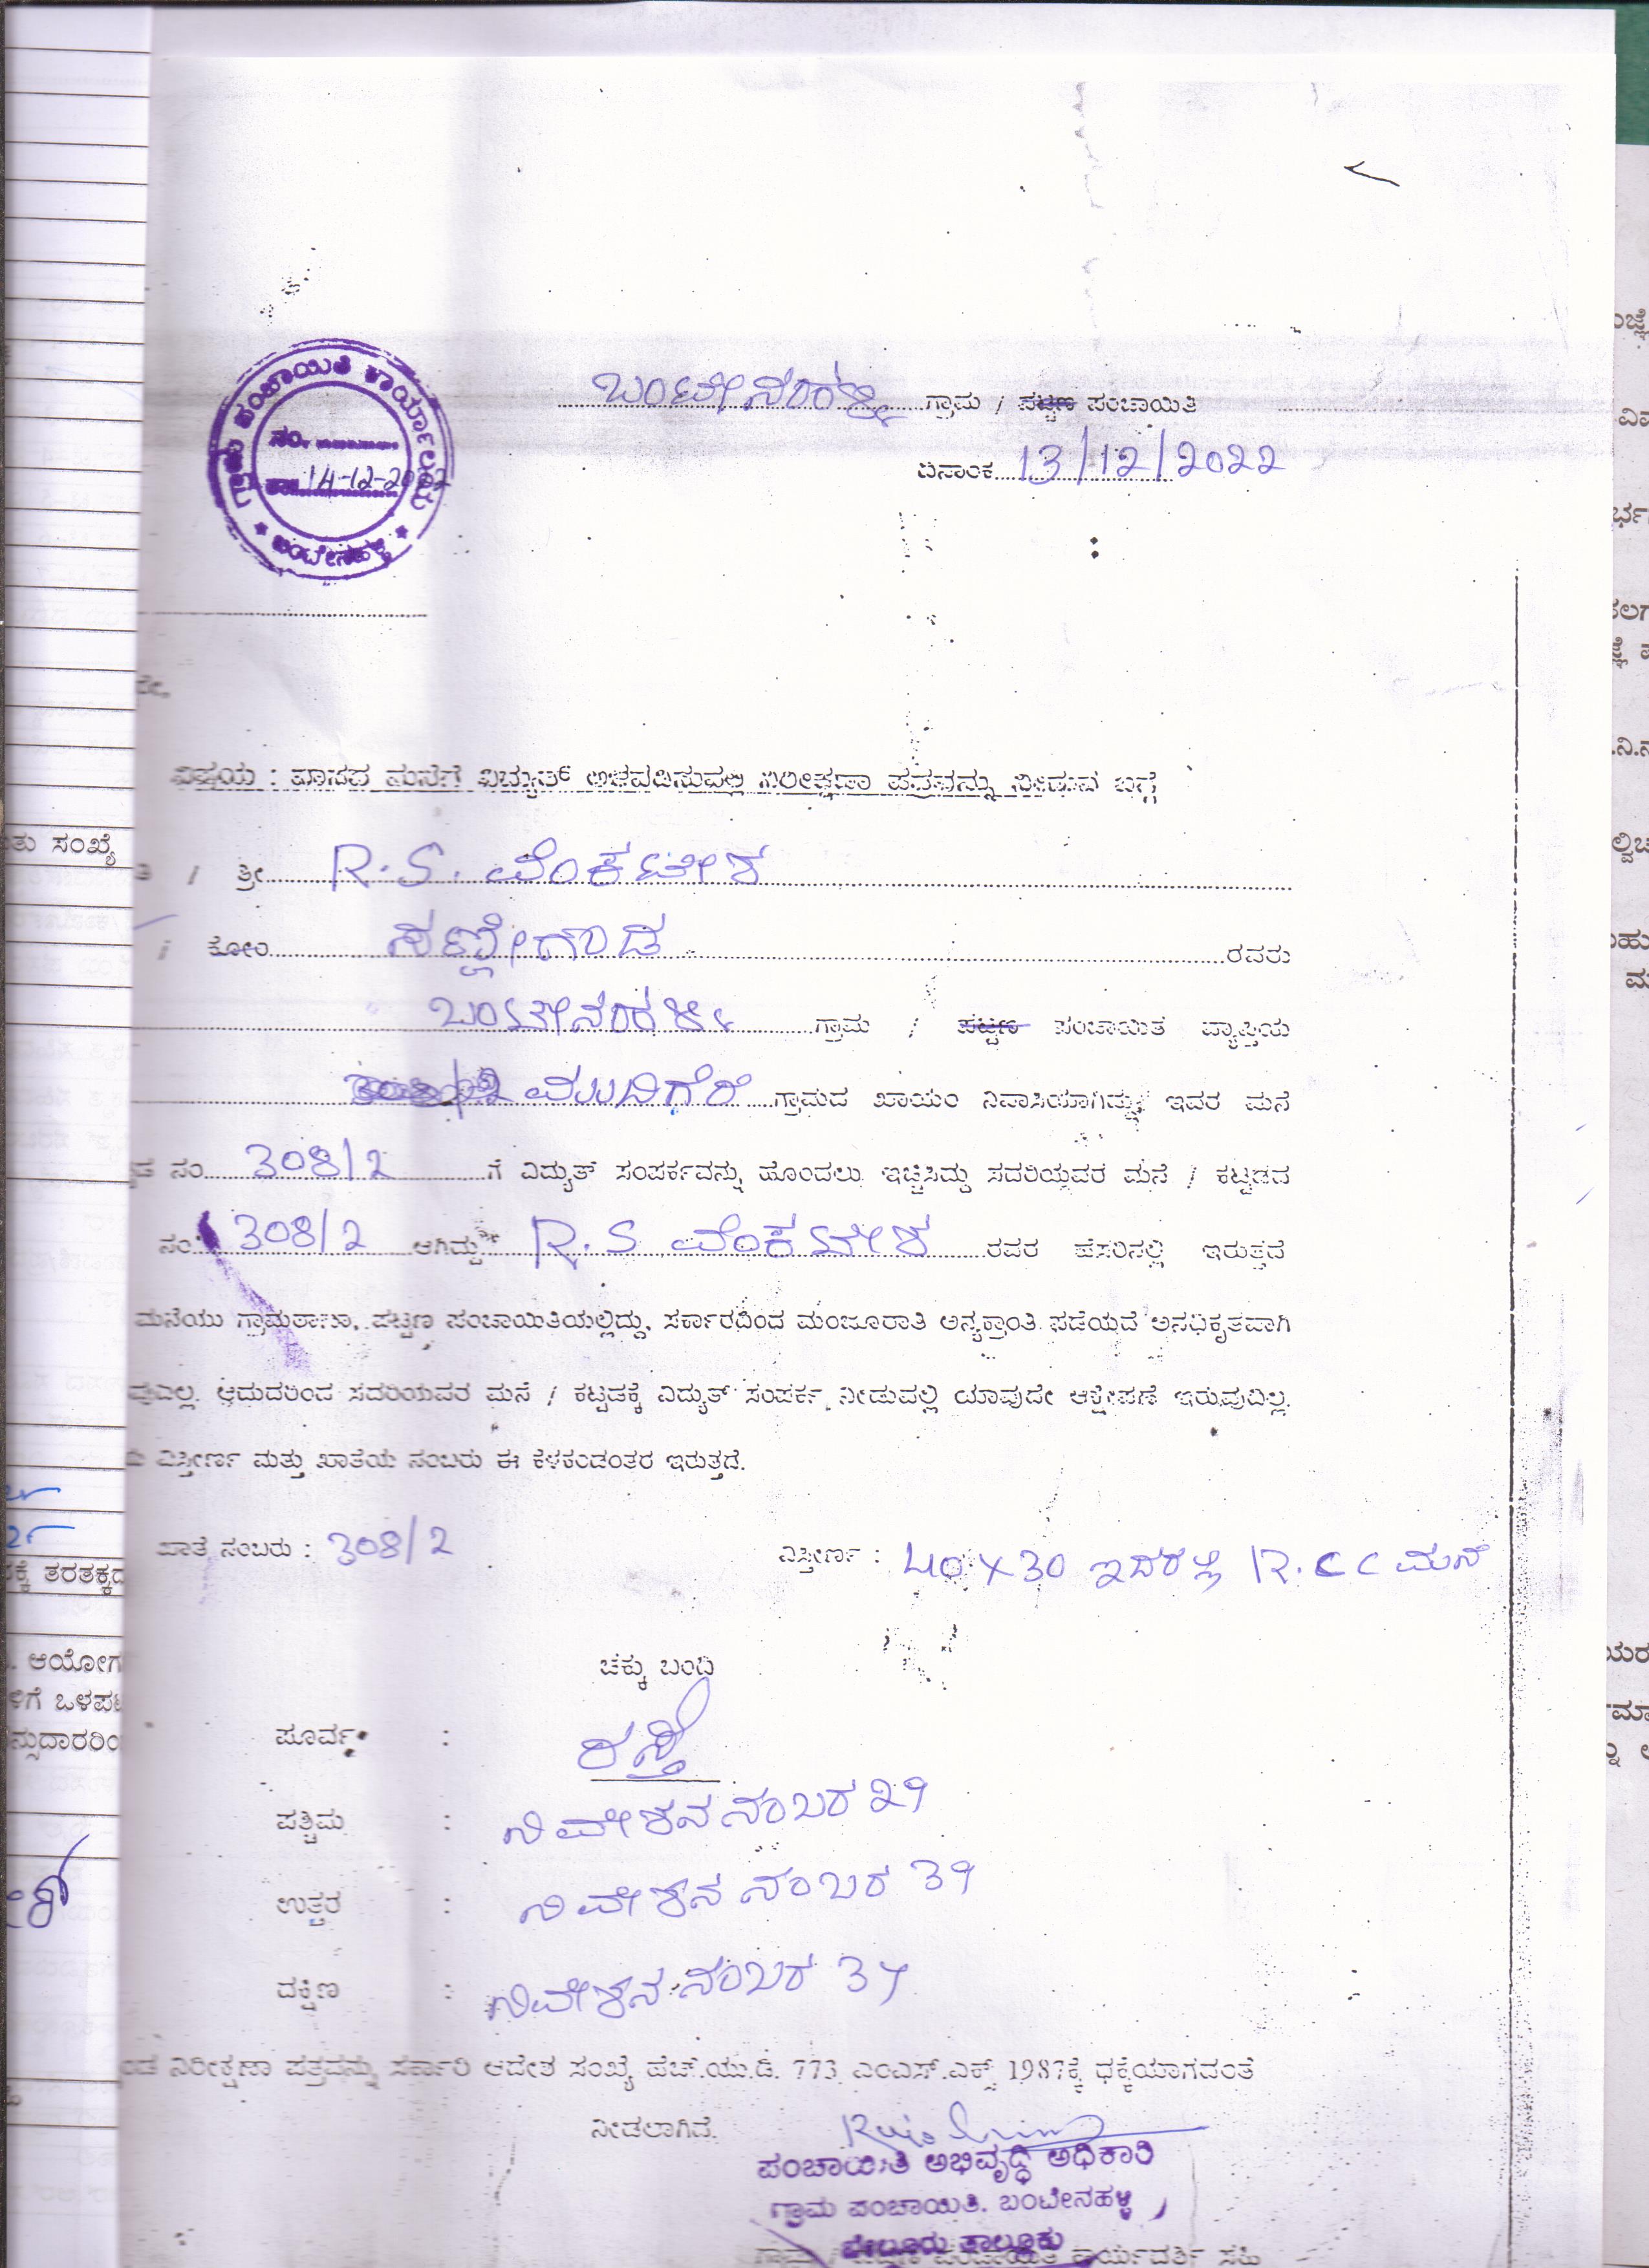 ಬಂಟೇನಹಳ್ಳಿ ಗ್ರಾಮ / ಪಟ್ಟಣ ಪಂಚಾಯಿತಿ
ಗ್ರಾಮ ಪಂಚಾಯಿತಿ ಕಾರ್ಯಾಲಯ
ನಂ.
14-12-2022
ಬಂಟೇನಹಳ್ಳಿ
ದಿನಾಂಕ 13/12/2022
ವಿಷಯ : ವಾಸದ ಮನೆಗೆ ವಿದ್ಯುತ್ ಅಳವಡಿಸುವಲ್ಲಿ ನಿರೀಕ್ಷಣಾ ಪತ್ರವನ್ನು ನೀಡುವ ಬಗ್ಗೆ
ತು ಸಂಖ್ಯೆ
/ ಶ್ರೀ R.S. ವೆಂಕಟೇಶ
ಕೋಂ ಸಣ್ಣೇಗೌಡ ರವರು
ಬಂಟೇನಹಳ್ಳಿ ಗ್ರಾಮ / ಪಟ್ಟಣ ಪಂಚಾಯಿತ ವ್ಯಾಪ್ತಿಯ
ಮುದಿಗೆರೆ ಗ್ರಾಮದ ಖಾಯಂ ನಿವಾಸಿಯಾಗಿದ್ದು, ಇವರ ಮನೆ
ಡ ನಂ 308/2 ಗೆ ವಿದ್ಯುತ್ ಸಂಪರ್ಕವನ್ನು ಹೊಂದಲು ಇಚ್ಚಿಸಿದ್ದು ಸದರಿಯವರ ಮನೆ / ಕಟ್ಟಡದ
ನಂ 308/2 ಆಗಿದ್ದು R.S ವೆಂಕಟೇಶ ರವರ ಹೆಸರಿನಲ್ಲಿ ಇರುತ್ತದೆ
ಮನೆಯು ಗ್ರಾಮಠಾಣಾ, ಪಟ್ಟಣ ಪಂಚಾಯಿತಿಯಲ್ಲಿದ್ದು, ಸರ್ಕಾರದಿಂದ ಮಂಜೂರಾತಿ ಅನ್ಯಕ್ರಾಂತಿ ಪಡೆಯದೆ ಅನಧಿಕೃತವಾಗಿ
ವುದಿಲ್ಲ. ಆದುದರಿಂದ ಸದರಿಯವರ ಮನೆ / ಕಟ್ಟಡಕ್ಕೆ ವಿದ್ಯುತ್ ಸಂಪರ್ಕ ನೀಡುವಲ್ಲಿ ಯಾವುದೇ ಆಕ್ಷೇಪಣೆ ಇರುವುದಿಲ್ಲ.
ವಿಸ್ತೀರ್ಣ ಮತ್ತು ಖಾತೆಯ ನಂಬರು ಈ ಕೆಳಕಂಡಂತರ ಇರುತ್ತದೆ.
ಖಾತೆ ನಂಬರು : 308/2 ವಿಸ್ತೀರ್ಣ : 40 x 30 ಇದರಲ್ಲಿ R.CC ಮನೆ
ಕ್ಕೆ ತರತಕ್ಕದ
. ಆಯೋಗ
ಳಿಗೆ ಒಳಪಟ
ನ್ಸುದಾರರಿಂ
ಚಕ್ಕು ಬಂದಿ
ಪೂರ್ವ : ರಸ್ತೆ
ಪಶ್ಚಿಮ : ನಿವೇಶನ ನಂಬರ 29
ಉತ್ತರ : ನಿವೇಶನ ನಂಬರ 39
ದಕ್ಷಿಣ : ನಿವೇಶನ ನಂಬರ 37
ನಿರೀಕ್ಷಣಾ ಪತ್ರವನ್ನು ಸರ್ಕಾರಿ ಆದೇಶ ಸಂಖ್ಯೆ ಹೆಚ್.ಯು.ಡಿ. 773 ಎಂಎಸ್.ಎಕ್ಸ್ 1987ಕ್ಕೆ ಧಕ್ಕೆಯಾಗದಂತೆ
ನೀಡಲಾಗಿದೆ.
ಪಂಚಾಯಿತಿ ಅಭಿವೃದ್ಧಿ ಅಧಿಕಾರಿ
ಗ್ರಾಮ ಪಂಚಾಯಿತಿ. ಬಂಟೇನಹಳ್ಳಿ
ಬೇಲೂರು ತಾಲ್ಲೂಕು
ಗ್ರಾಮ / ಪಟ್ಟಣ ಪಂಚಾಯಿತಿ ಕಾರ್ಯದರ್ಶಿ ಸಹಿ